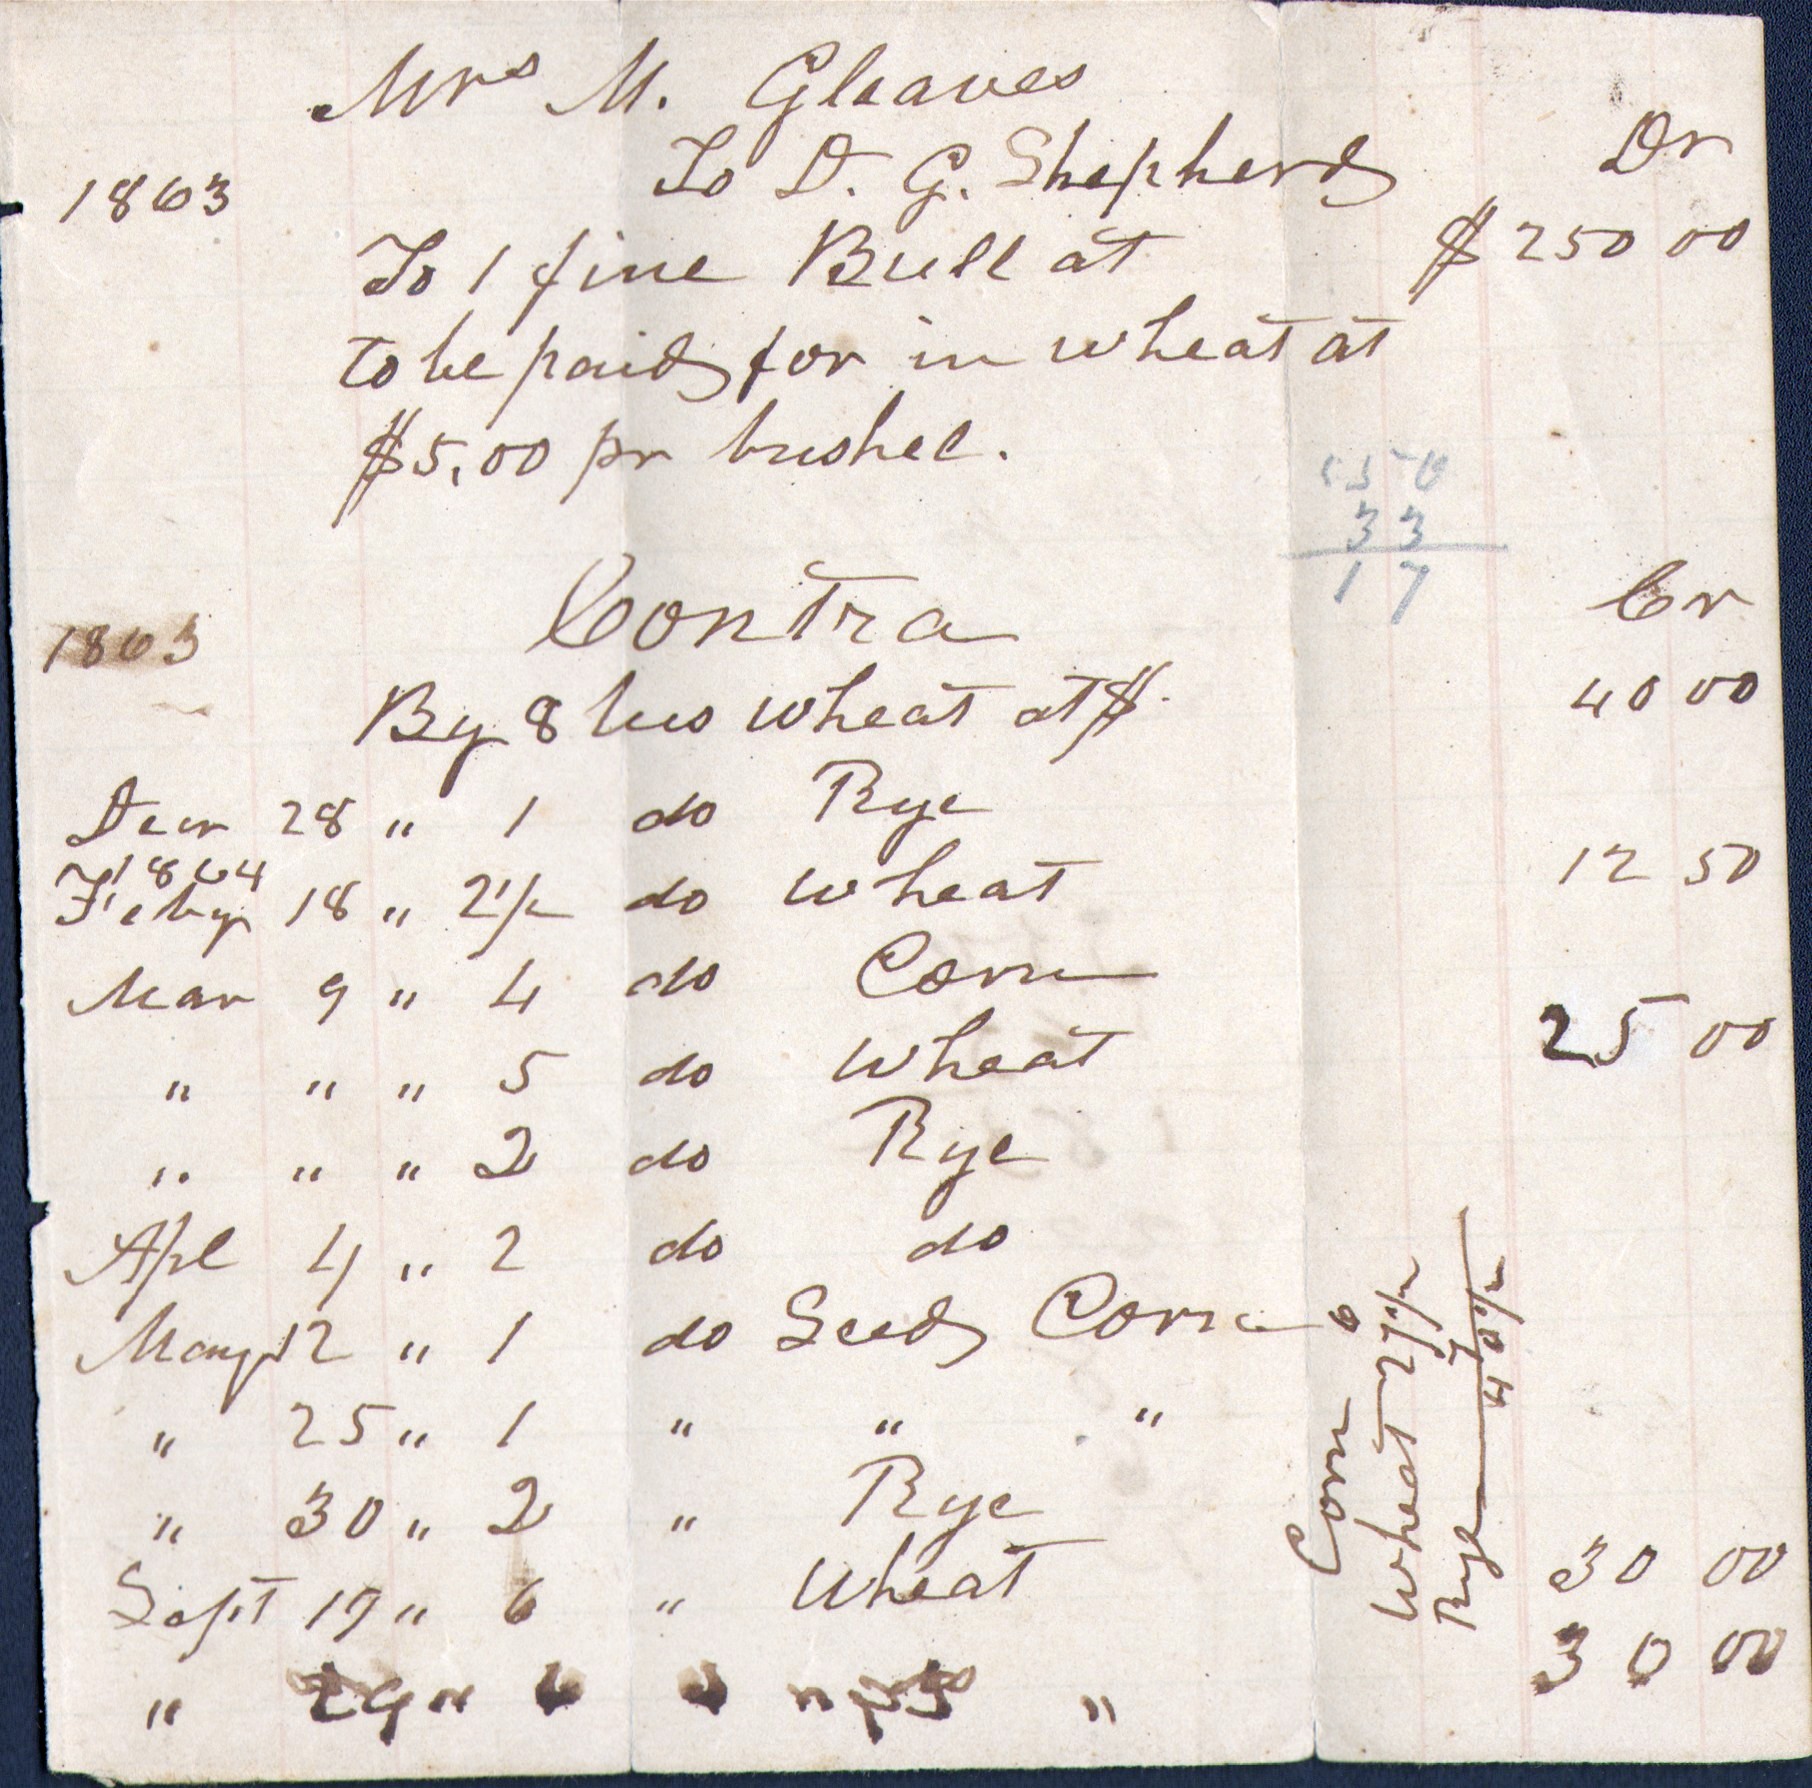 Mrs M. Gleaves
To D. G. Shepherd Dr
1863
To 1 fine Bull at $250 00
to be paid for in wheat at
$5,00 pr bushel.
250
33
17
Contra Cr
1863
By 8 bus wheat at $. 40 00
Decr 28 " 1 do Rye
1864
Feby 18 " 2 1/2 do wheat 12 50
Mar 9 " 4 do Corn
" " " 5 do wheat 25 00
" " " 2 do Rye
Apl 4 " 2 do do
May 12 " 1 do Seed Corn
" 25 " 1 " " "
" 30 " 2 " Rye
Sept 19 " 6 " Wheat 30 00
" 29 " 6 " 30 00
Corn 6
Wheat 27 1/2
Rye
40 1/2